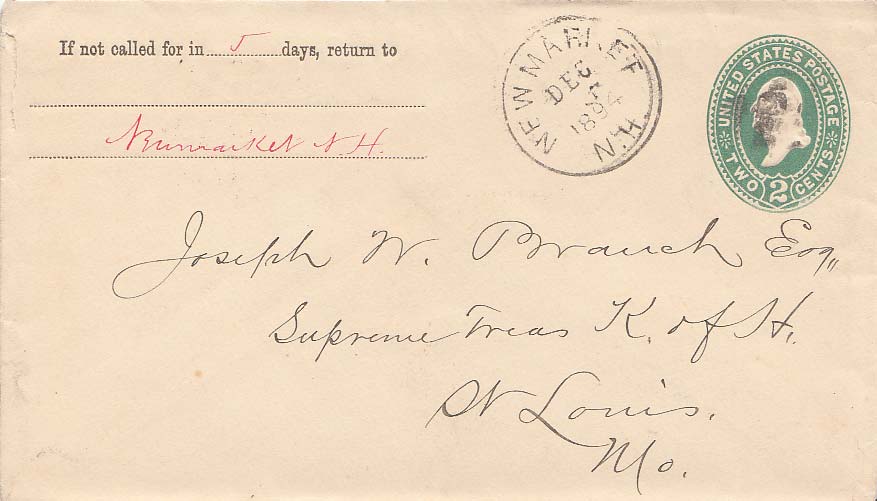 If not called for in 5 days, return to
Newmarket N.H.
NEWMARKET N.H.
DEC
5
1894
UNITED STATES POSTAGE
TWO 2 CENTS
Joseph W. Branch Esq,,
Supreme Treas K. of H.
St Louis.
Mo.